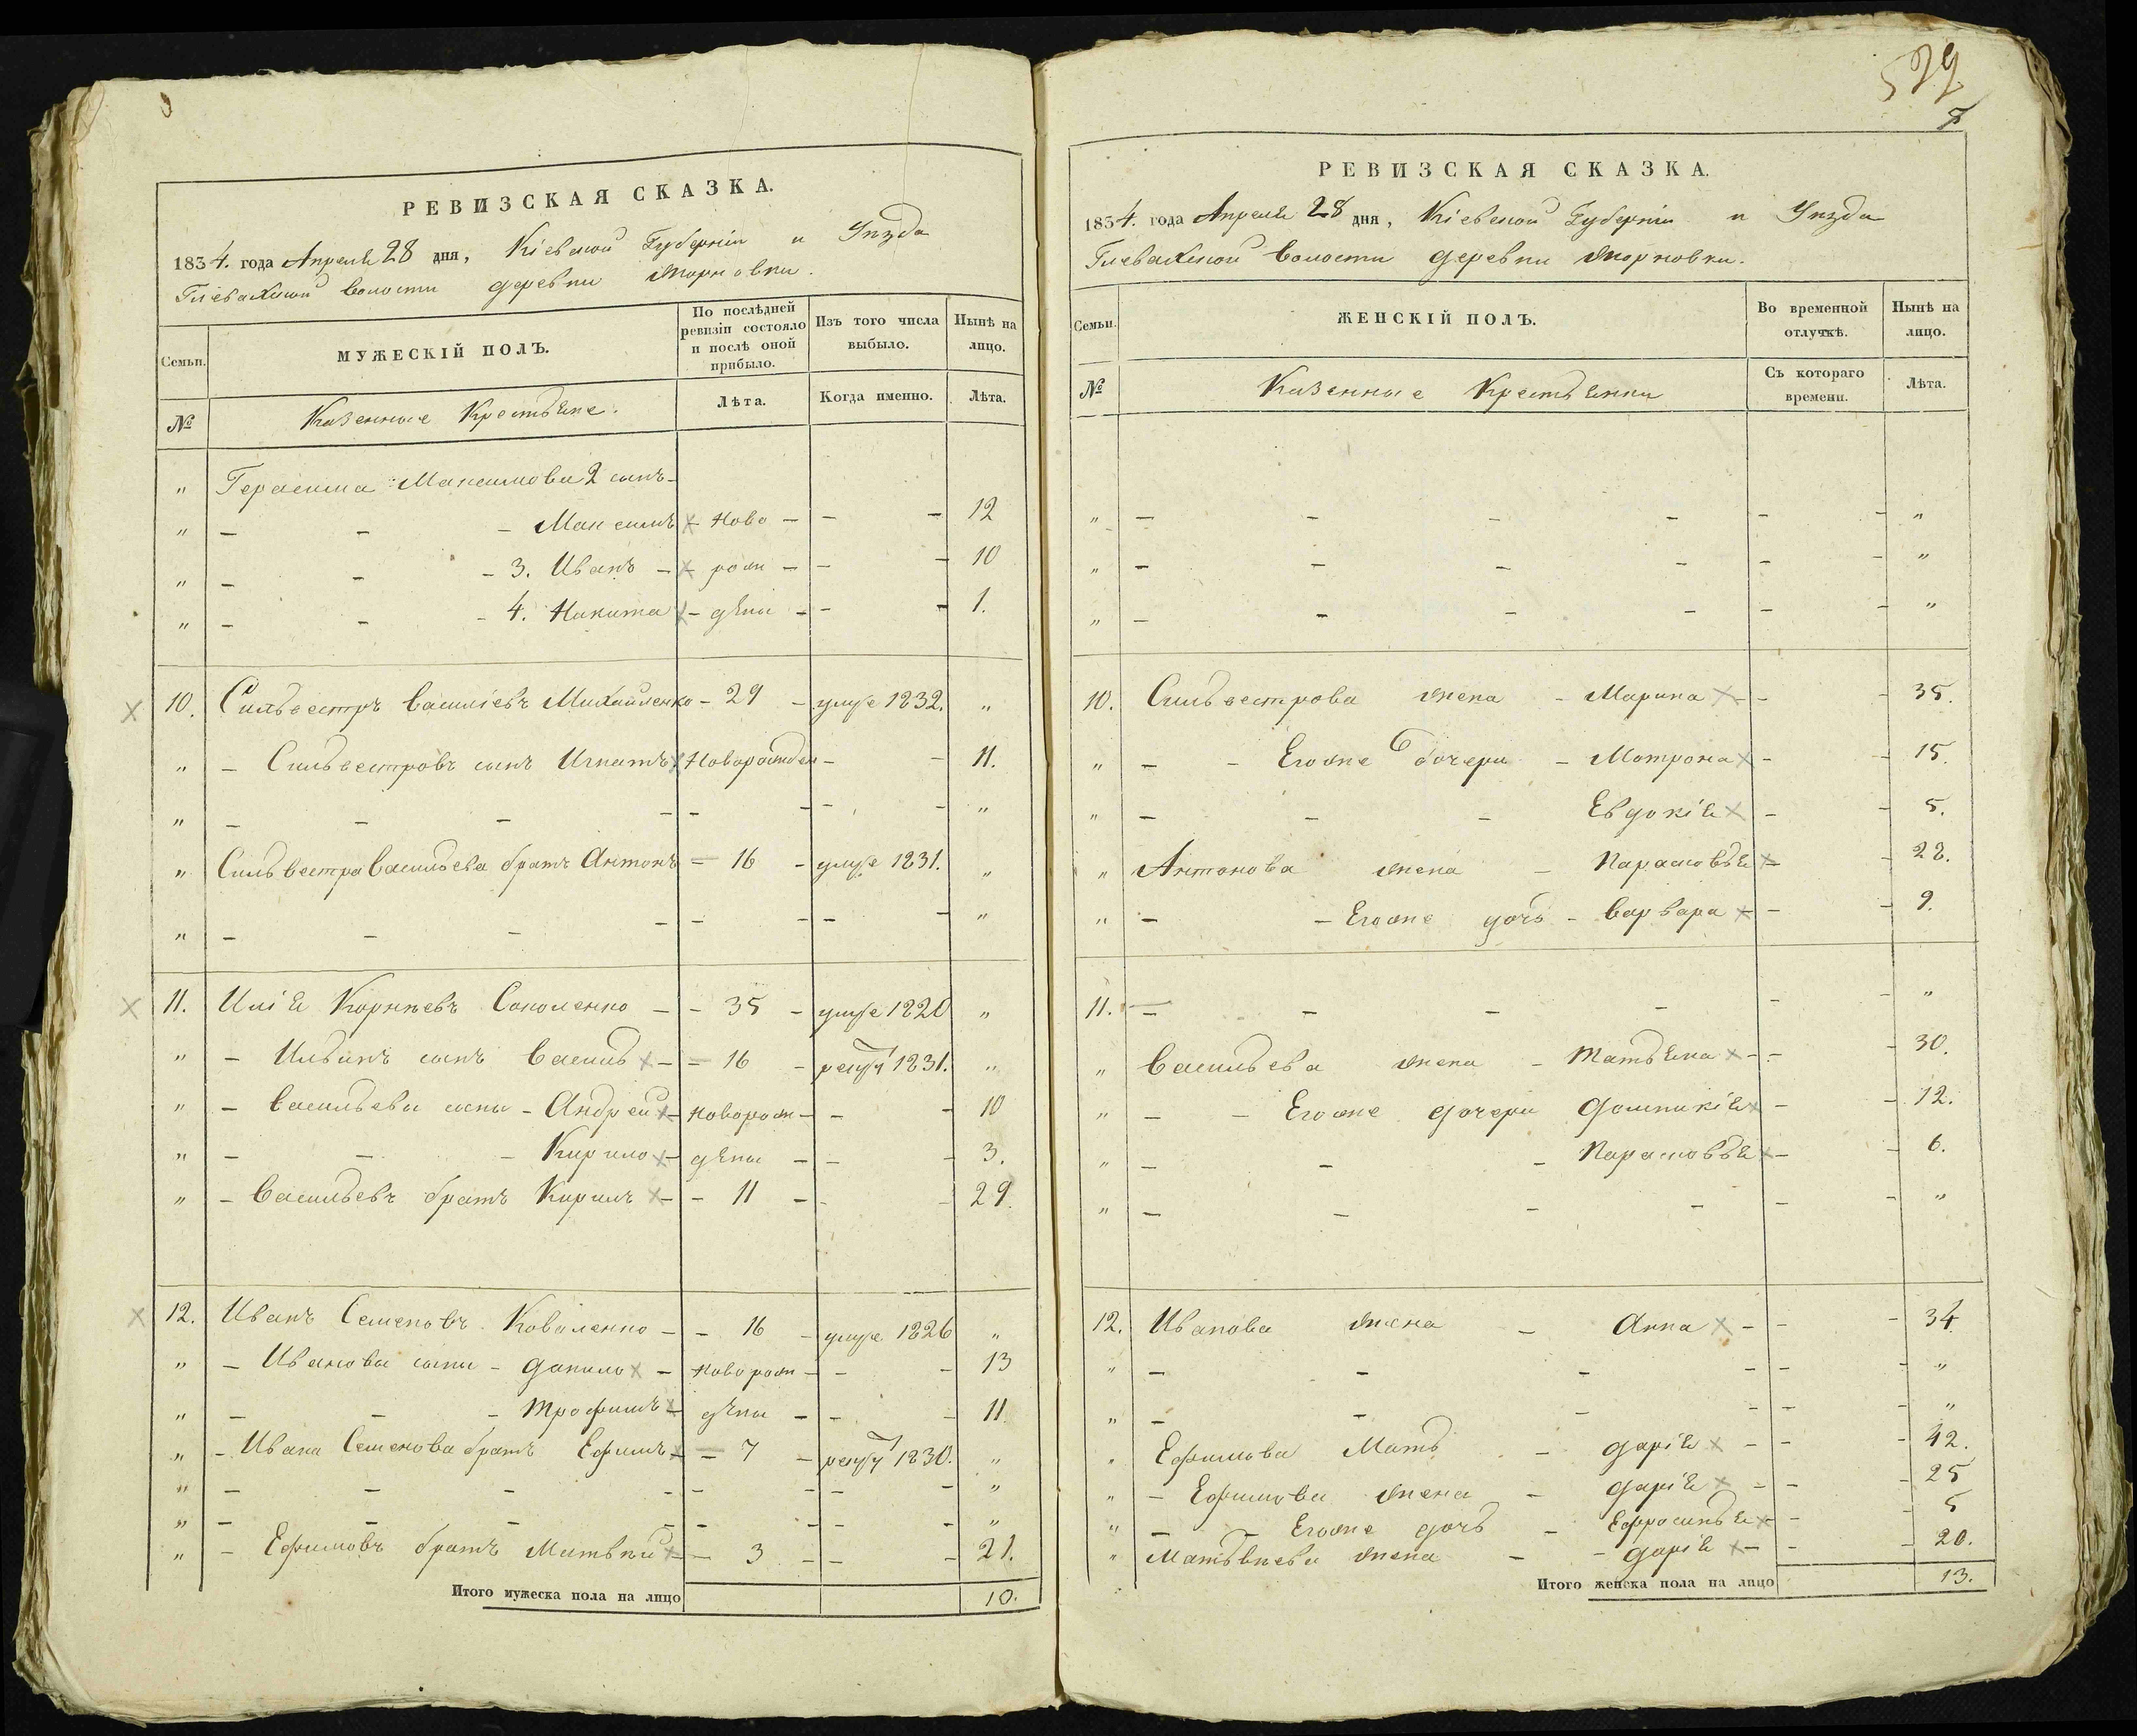 РЕВИЗСКАЯ СКАЗКА.
1834. года Апреля 28 дня, Кіевской Губерніи и Уѣзда
Глевахской волости деревни Жорновки.
Семьи.
МУЖЕСКІЙ ПОЛЪ.
По послѣдней ревизіи состояло и послѣ оной прибыло.
Изъ того числа выбыло.
Нынѣ на лицо.
№ Казенные Крестьяне. Лѣта. Когда именно. Лѣта.
" Герасима Максимова 2 сынъ -
" - - - Максимъ × - Ново - - - 12
" - - - 3. Иванъ - × - рож - - - 10
" - - - 4. Никита × - дѣни - - - 1.
× 10. Сильвестръ Василіевъ Михайленко - 29 - умре 1832. "
" - Сильвестровъ сынъ Игнатъ × Новорожден - - 11.
" - - - - - - - - "
" Сильвестра Васильева братъ Антонъ - 16 - умре 1831. "
" - - - - - - - - "
× 11. Илія Корнѣевъ Соколенко - - 35 - умре 1820 "
" - Ильинъ сынъ Василь × - - 16 - рекру 1831. "
" - Васильевы сыны - Андрей × - Новорож - - - 10
" - - - Кирило × - дѣны - - - 3.
" - Васильевъ братъ Кирилъ × - - 11 - - - 29.
× 12. Иванъ Семеновъ Коваленко - - 16 - умре 1826 "
" - Ивановы сыны - Данило × - Новорож - - - 13
" - - - Трофимъ × - дѣны - - - 11
" - Ивана Семенова братъ Ефимъ × - - 7 - рекру 1830. "
" - - - - - - - - "
" - - - - - - - - "
" - Ефимовъ братъ Матвѣй × - - 3 - - - 21.
Итого мужеска пола на лицо 10.
529
8
РЕВИЗСКАЯ СКАЗКА.
1834. года Апреля 28 дня, Кіевской Губерніи и Уѣзда
Глевахской волости деревни Жорновки.
Семьи.
ЖЕНСКІЙ ПОЛЪ.
Во временной отлучкѣ.
Нынѣ на лицо.
№ Казенные Крестьянки Съ котораго времени. Лѣта.
" - - - - - - "
" - - - - - - "
" - - - - - - "
10. Сильвестрова жена - Марина × - - - 35.
" - - Егоже дочери - Мотрона × - - 15.
" - - - Евдокія × - - 5.
" Антонова жена - Парасковья × - - 28.
" - - Егоже дочь - Варвара × - - - 9.
11. - - - - - - "
" Васильева жена - Татьяна × - - - 30.
" - - Егоже дочери Домникія × - - 12.
" - - - Парасковья × - - 6.
" - - - - - - "
12. Иванова жена - Анна × - - - 34.
" - - - - - - "
" - - - - - - "
" Ефимова Мать - Дарія × - - - 42.
" - Ефимова жена - Дарія × - - - 25
" - - Егоже дочь - Ефросинья × - - 5
" Матвѣева жена - - Дарія × - - - 20.
Итого женска пола на лицо 13.